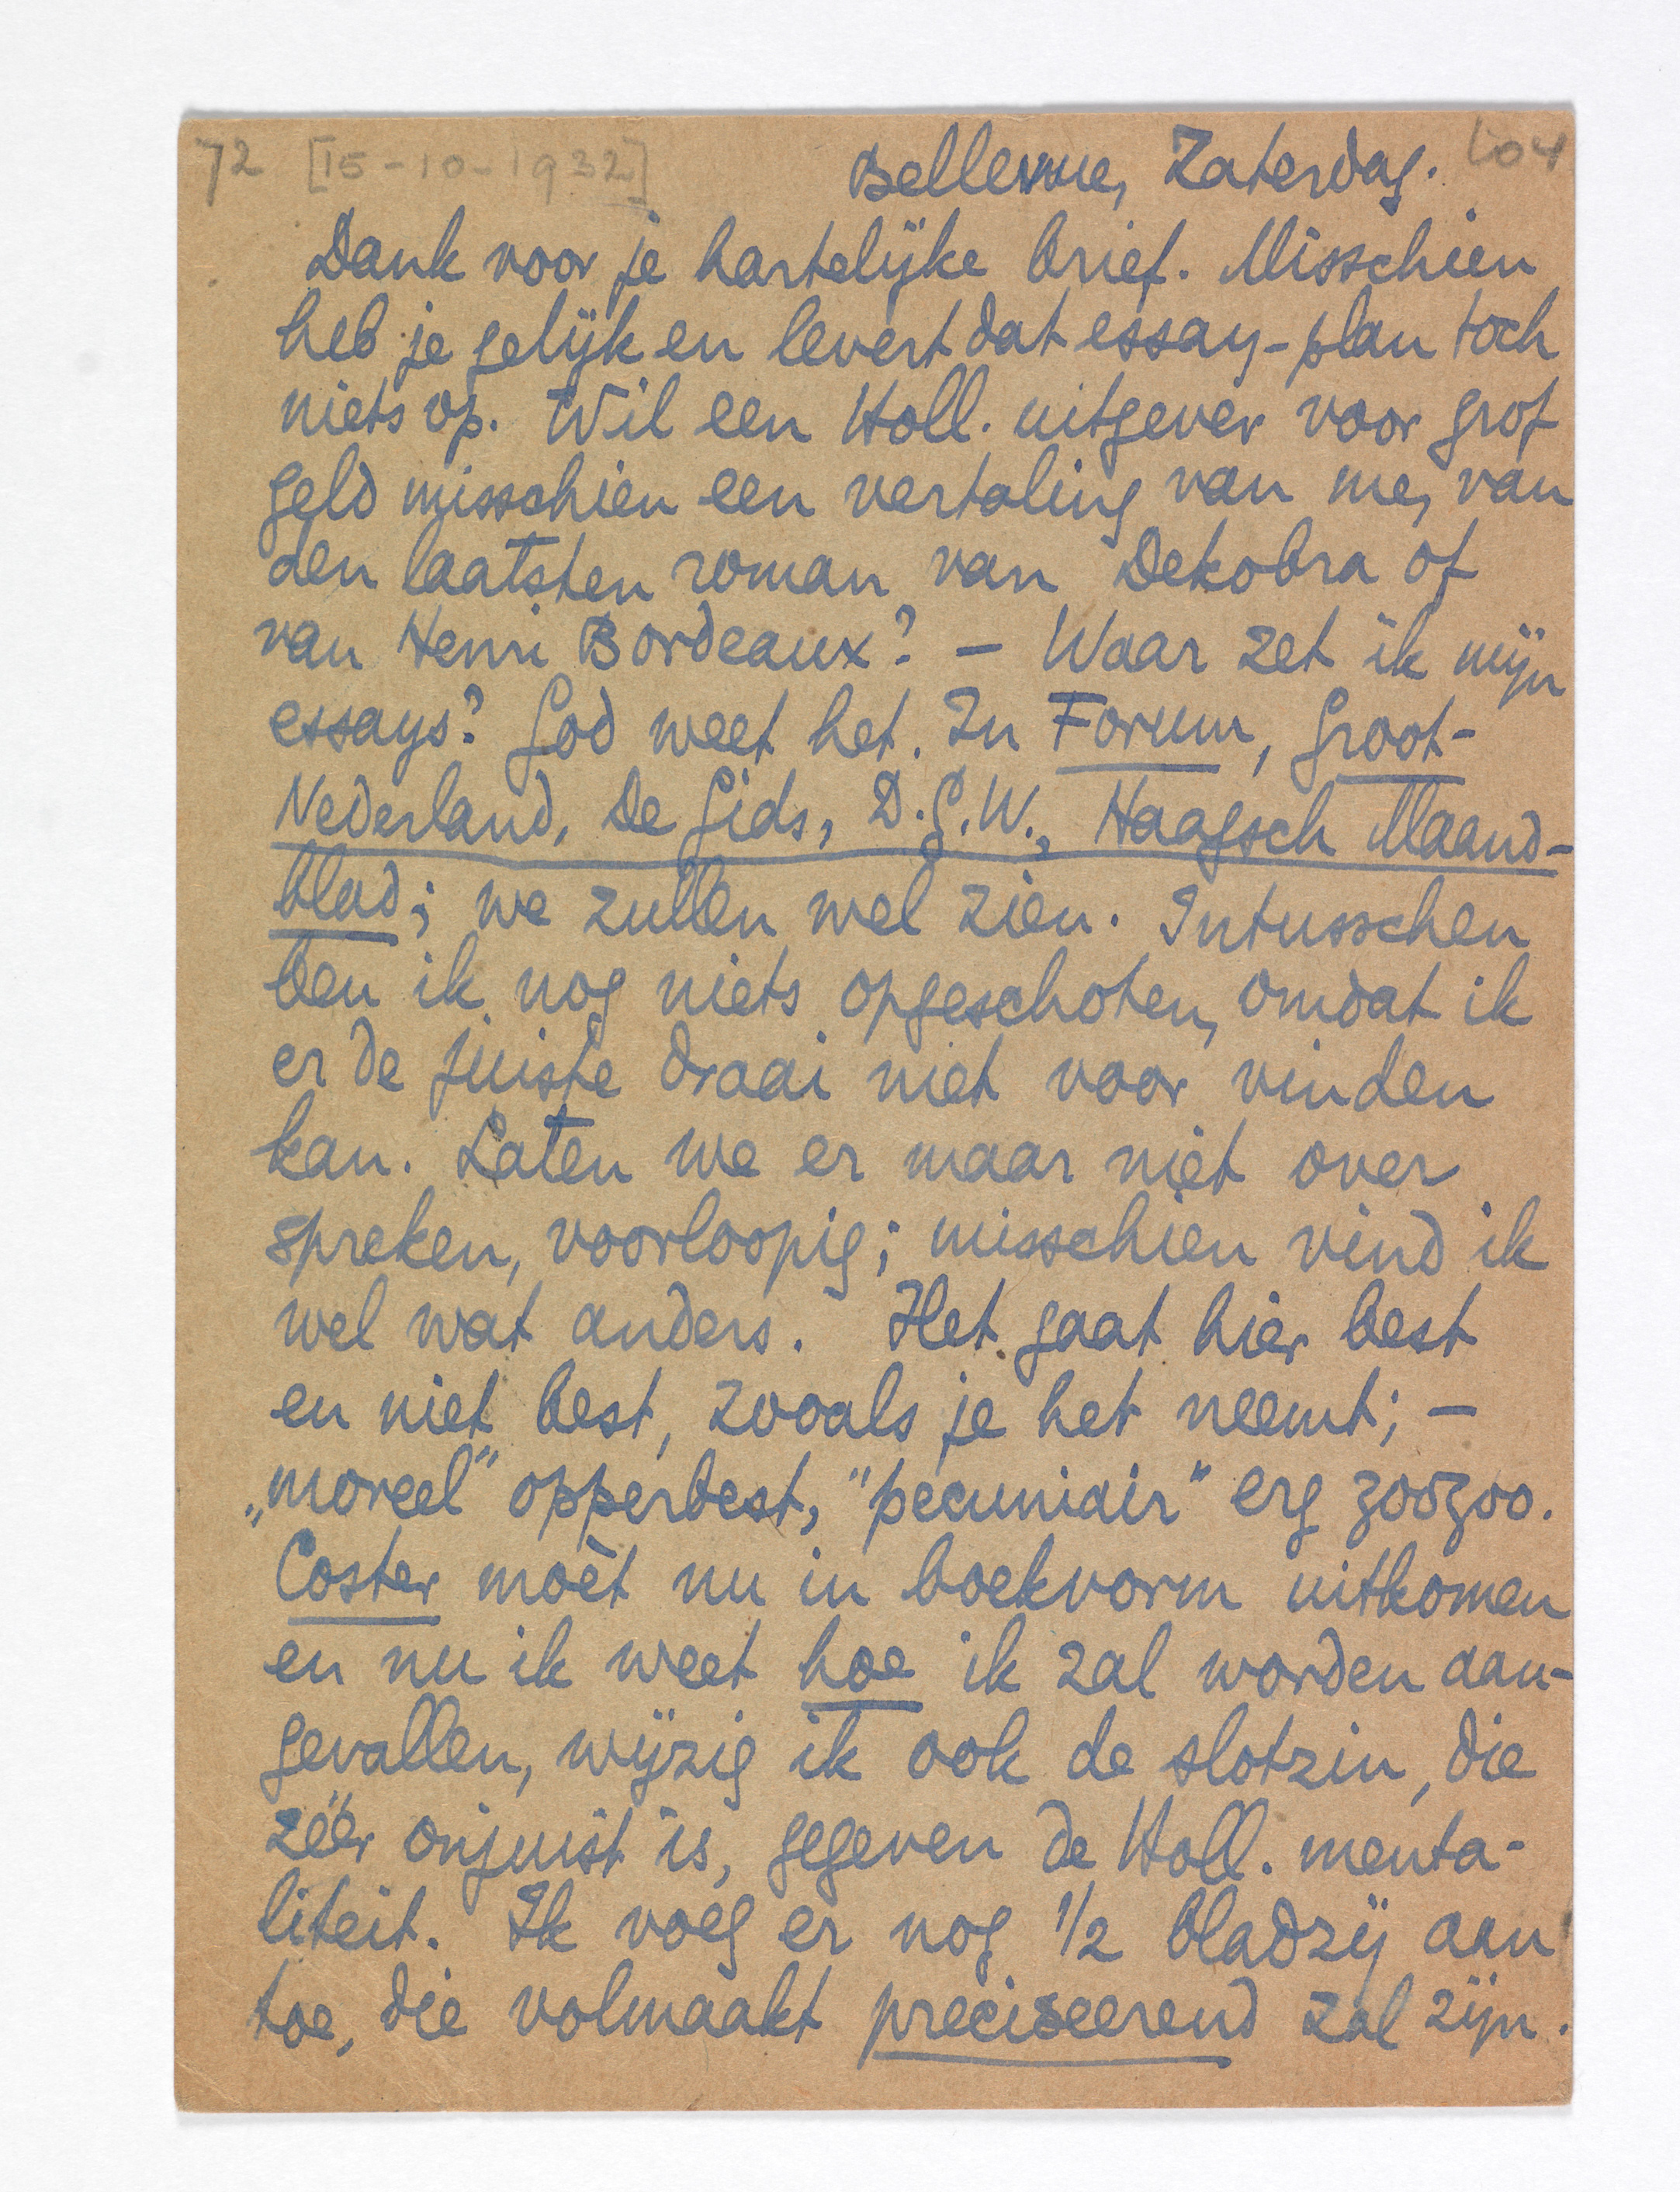 72 [15-10-1932] Bellevue, Zaterdag. 104
Dank voor je hartelijke brief. Misschien
heb je gelijk en levert dat essay-plan toch
niets op. Wil een Holl. uitgever voor grof
geld misschien een vertaling van me, van
den laatsten roman van Dekobra of
van Henri Bordeaux? — Waar zet ik mijn
essays? God weet het. In Forum, Groot-
Nederland, De Gids, D.G.W., Haagsch Maand-
blad; we zullen wel zien. Intusschen
ben ik nog niets opgeschoten, omdat ik
er de juiste draai niet voor vinden
kan. Laten we er maar niet over
spreken, voorloopig; misschien vind ik
wel wat anders. Het gaat hier best
en niet best, zooals je het neemt; —
„moreel” opperbest, "pecuniair" erg zoozoo.
Coster moèt nu in boekvorm uitkomen
en nu ik weet hoe ik zal worden aan-
gevallen, wijzig ik ook de slotzin, die
zéér onjuist is, gegeven de Holl. menta-
liteit. Ik voeg er nog 1/2 bladzij aan
toe, die volmaakt preciseerend zal zijn.